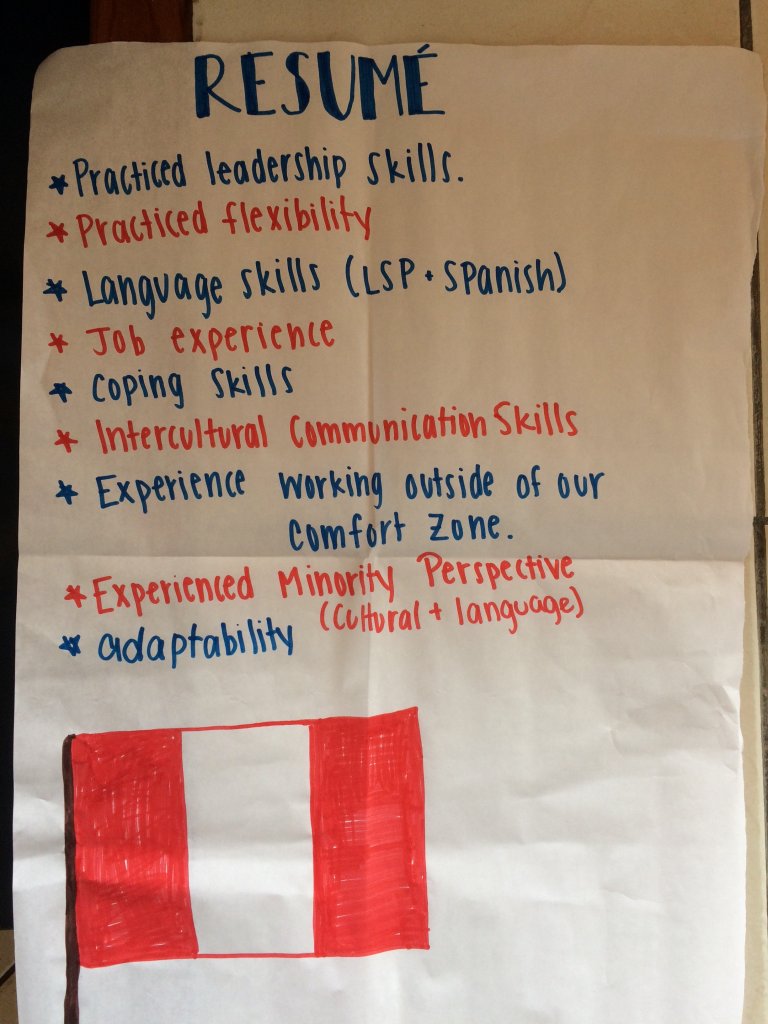 RESUMÉ
* Practiced leadership skills.
* Practiced flexibility
* Language skills (LSP + Spanish)
* Job experience
* Coping skills
* Intercultural Communication Skills
* Experience working outside of our
comfort zone.
* Experienced Minority Perspective
(Cultural + language)
* adaptability